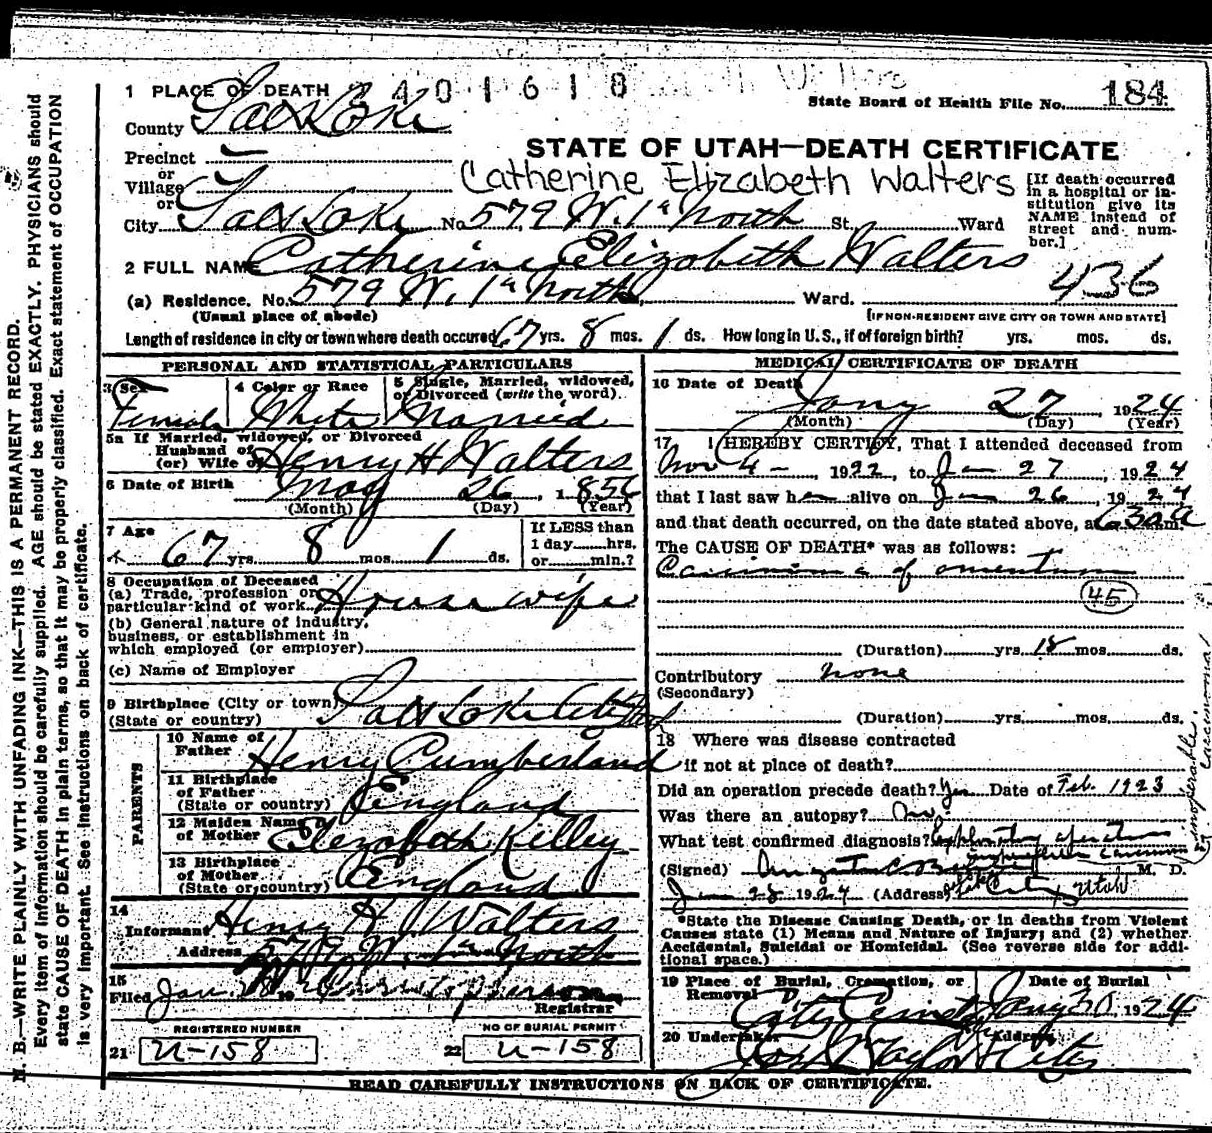 1 PLACE OF DEATH 2401618
State Board of Health File No. 184
County Salt Lake
STATE OF UTAH—DEATH CERTIFICATE
Precinct
or
Village
or
Catherine Elizabeth Walters
[If death occurred in a hospital or institution give its NAME instead of street and number.]
City Salt Lake No. 579 W. 1st North St. Ward
2 FULL NAME Catherine Elizabeth Walters
436
(a) Residence. No. 579 W. 1st North, Ward.
(Usual place of abode) [IF NON-RESIDENT GIVE CITY OR TOWN AND STATE]
Length of residence in city or town where death occured 67 yrs. 8 mos. 1 ds. How long in U. S., if of foreign birth? yrs. mos. ds.
PERSONAL AND STATISTICAL PARTICULARS
3 Sex 4 Color or Race 5 Single, Married, widowed,
or Divorced (write the word).
Female White Married
5a If Married, widowed, or Divorced
Husband of
(or) Wife of Henry H Walters
6 Date of Birth May 26, 1856
(Month) (Day) (Year)
7 Age If LESS than
1 day hrs.
67 yrs. 8 mos. 1 ds. or min.?
8 Occupation of Deceased
(a) Trade, profession or
particular kind of work Housewife
(b) General nature of industry,
business, or establishment in
which employed (or employer)
(c) Name of Employer
9 Birthplace (City or town)
(State or country) Salt Lake City
PARENTS
10 Name of
Father Henry Cumberland
11 Birthplace
of Father
(State or country) England
12 Maiden Name
of Mother Elezabeth Killey
13 Birthplace
of Mother
(State or country) England
14
Informant Henry H. Walters
Address 579 W. 1st North
15
Filed Jan. 28 19
Registrar
REGISTERED NUMBER NO OF BURIAL PERMIT
21 U-158 22 U-158
MEDICAL CERTIFICATE OF DEATH
16 Date of Death
Jany 27, 1924
(Month) (Day) (Year)
17 I HEREBY CERTIFY, That I attended deceased from
Nov 4, 1922, to Jan 27, 1924
that I last saw her alive on Jan 26, 1924
and that death occurred, on the date stated above, at 630a m.
The CAUSE OF DEATH* was as follows:
Carcinoma of omentum
45
(Duration) yrs. 18 mos. ds.
Contributory none
(Secondary)
(Duration) yrs. mos. ds.
18 Where was disease contracted
if not at place of death?
Did an operation precede death? Yes Date of Feb. 1923
Was there an autopsy? No
What test confirmed diagnosis? Exploratory operation
inoperable carcinoma
(Signed) M. D.
Jan 28, 1924 (Address) City Utah
*State the Disease Causing Death, or in deaths from Violent
Causes state (1) Means and Nature of Injury; and (2) whether
Accidental, Suicidal or Homicidal. (See reverse side for addi-
tional space.)
19 Place of Burial, Cremation, or Date of Burial
Removal
City Jany 30, 1924
20 Undertaker Address
Jos Taylor City
READ CAREFULLY INSTRUCTIONS ON BACK OF CERTIFICATE.
N. B.—WRITE PLAINLY WITH UNFADING INK—THIS IS A PERMANENT RECORD.
Every item of information should be carefully supplied. AGE should be stated EXACTLY. PHYSICIANS should
state CAUSE OF DEATH in plain terms, so that it may be properly classified. Exact statement of OCCUPATION
is very important. See instructions on back of certificate.